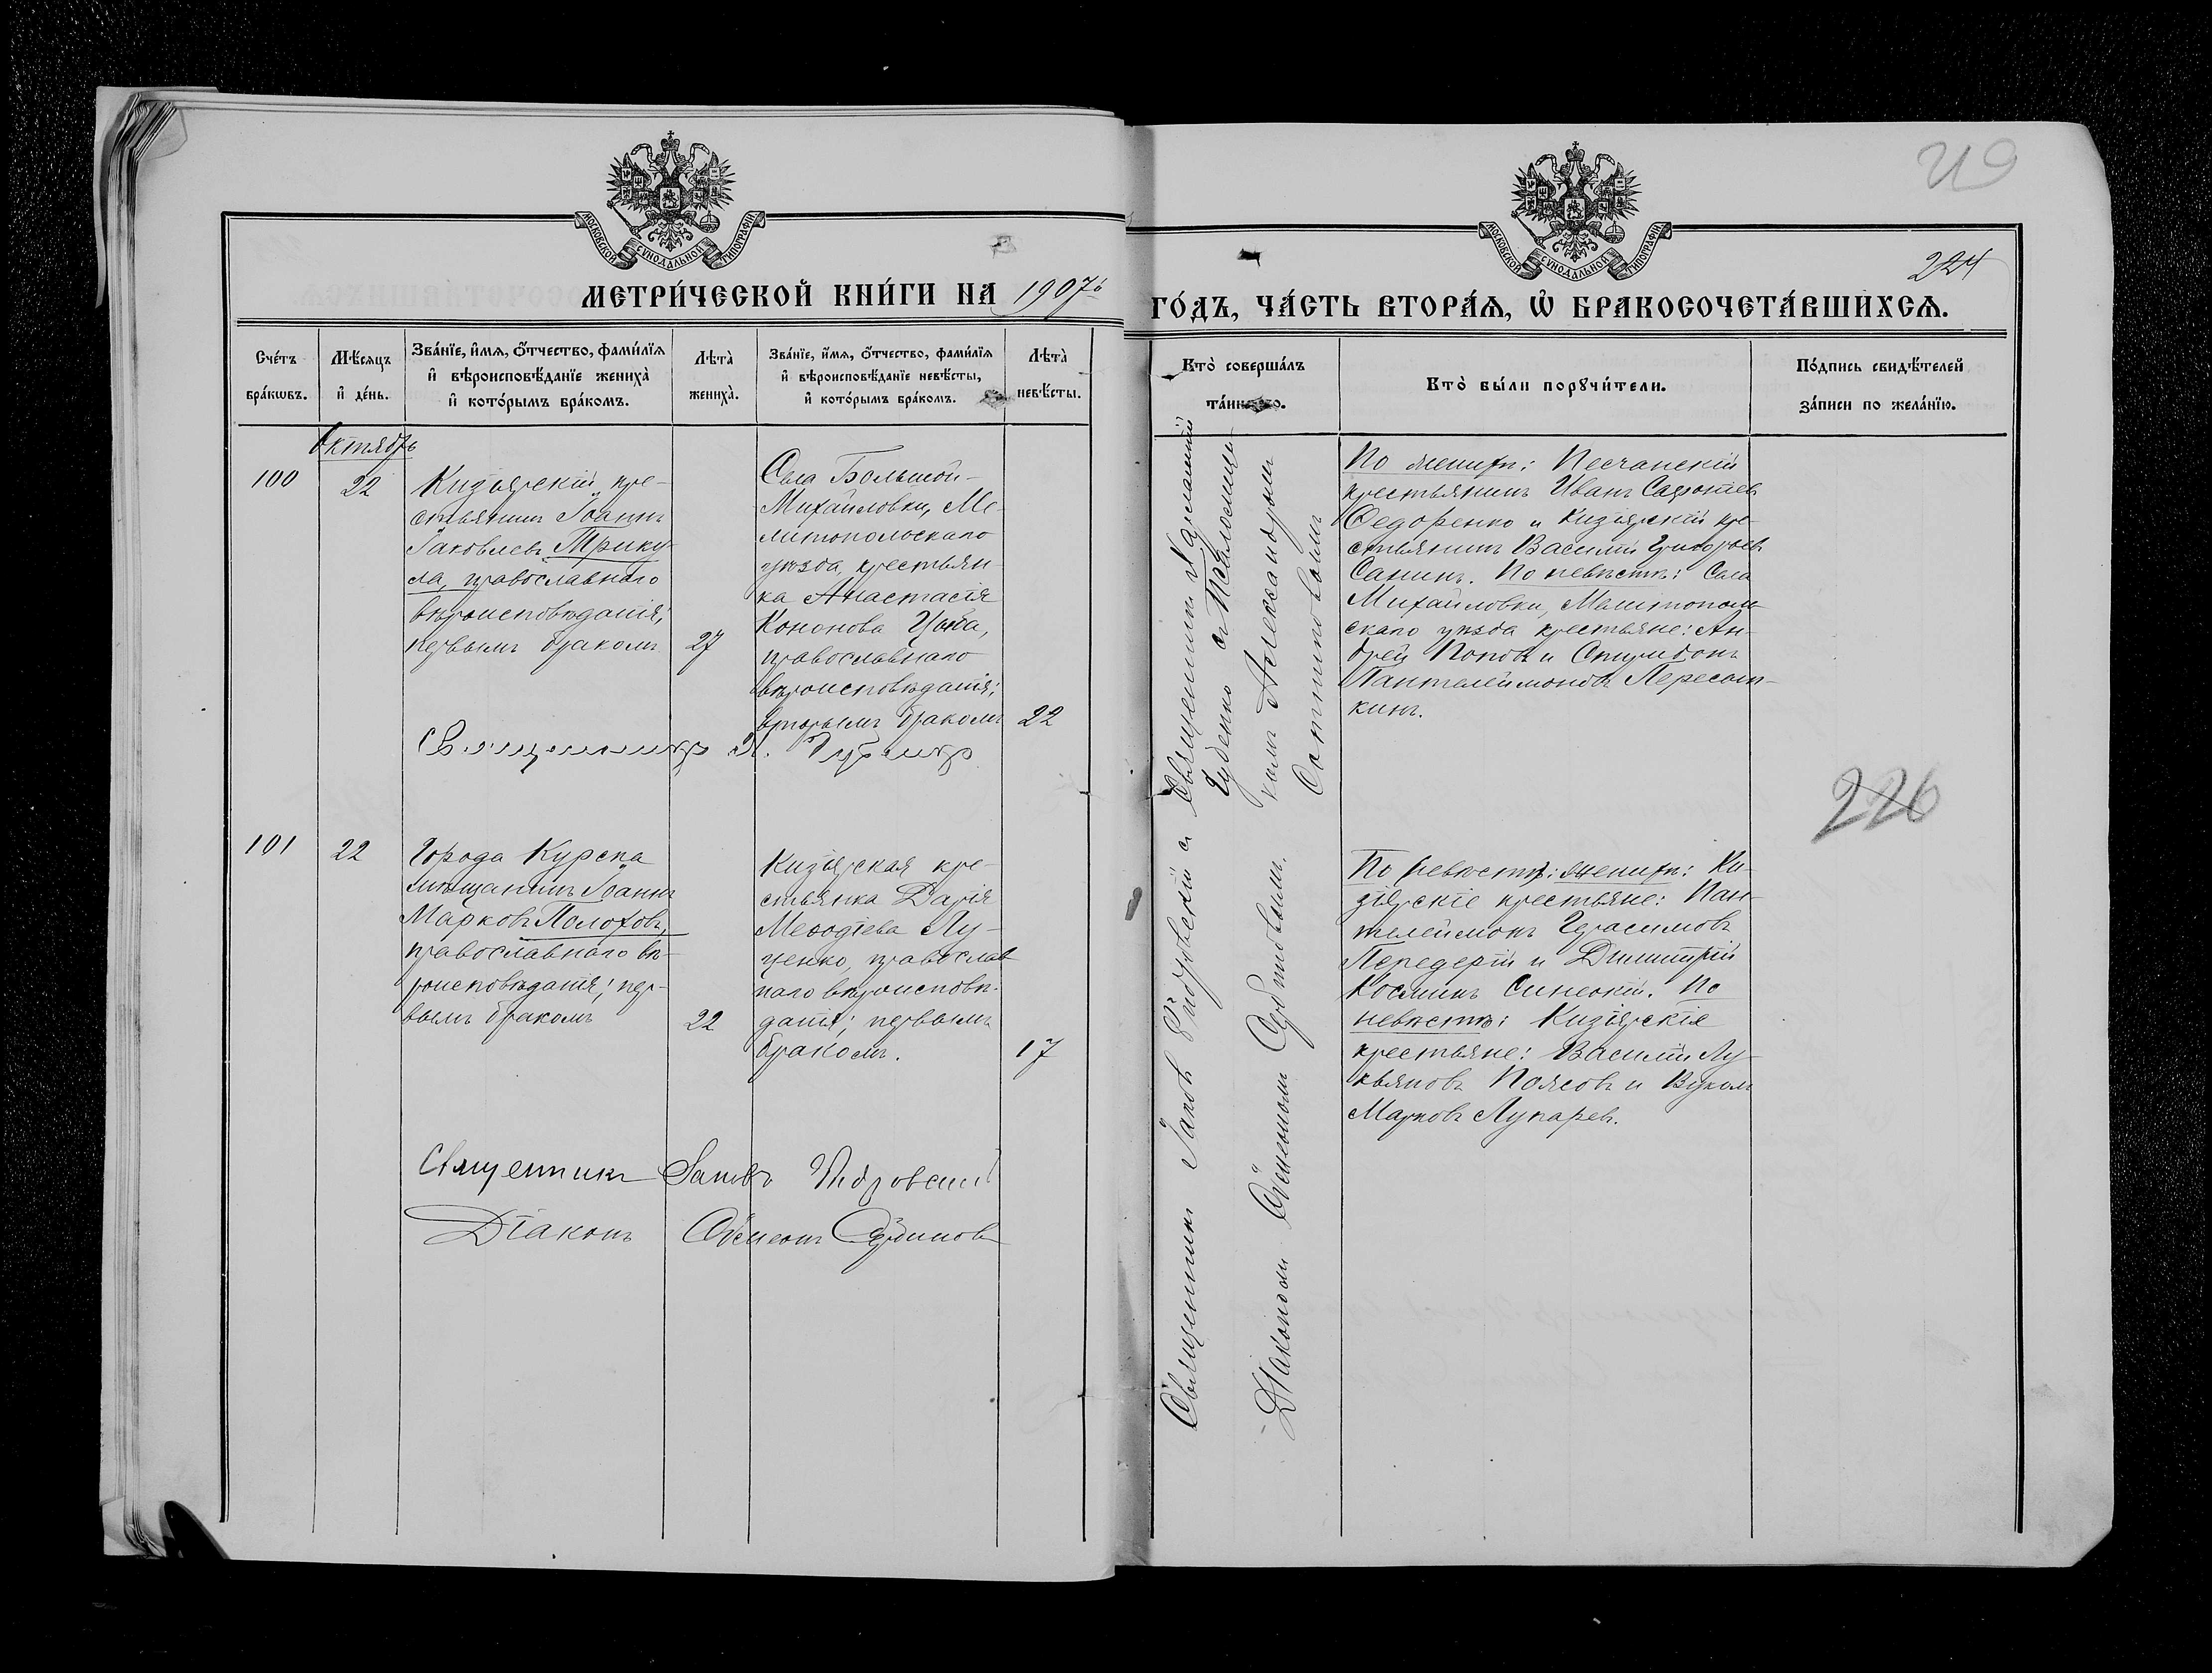 219
224
МОСКОВСКОЙ СѴНОДАЛЬНОЙ ТИПОГРАФІИ
МОСКОВСКОЙ СѴНОДАЛЬНОЙ ТИПОГРАФІИ
МЕТРИ́ЧЕСКОЙ КНИ́ГИ НА 1907й
ГО́ДЪ, ЧА́СТЬ ВТОРА́Ѧ, Ѡ҆ БРАКОСОЧЕТА́ВШИХСѦ.
Сче́тъ
бра́кѡвъ.
Мѣ́сяцъ
и҆ де́нь.
Зва́нїе, и҆́мѧ, о҆́тчество, фами́лїѧ
и҆ вѣроисповѣ́данїе жениха̀
и҆ кото́рымъ бра́комъ.
Лѣта̀
жениха̀.
Зва́нїе, и҆́мѧ, о҆́тчество, фами́лїѧ
и҆ вѣроисповѣ́данїе невѣ́сты,
и҆ кото́рымъ бра́комъ.
Лѣта̀
невѣ́сты.
Кто̀ соверша́лъ
та́инство.
Кто̀ бы́ли порꙋчи́тели.
По́дпись свидѣ́телей
за́писи по жела́нїю.
Октябрь
100
22
Кизіярскій кре-
стьянинъ Іоаннъ
Іаковлевъ Трику-
ла, православнаго
вѣроисповѣданія;
первымъ бракомъ
27
Села Большой-
Михайловки, Ме-
литопольскаго
уѣзда, крестьян-
ка Анастасія
Кононова Цыба,
православнаго
вѣроисповѣданія;
вторымъ бракомъ
22
Священникъ
По женихѣ: Песчанскій
крестьянинъ Иванъ
Федоренко и Кизіярскій кре-
стьянинъ Василій Григорьевъ
Санинъ. По невѣстѣ: Села
Михайловки, Мелитополь-
скаго уѣзда крестьяне: Ан-
дрей Поповъ и Спиридонъ
Пантелеймоновъ Пересып-
кинъ.
226
101
22
Города Курска
мѣщанинъ Іоаннъ
Марковъ Полоховъ,
православнаго вѣ-
роисповѣданія; пер-
вымъ бракомъ
22
Кизіярская кре-
стьянка Дарія
Меѳодіева Лу-
ценко, православ
наго вѣроисповѣ-
данія; первымъ
бракомъ.
17
Священникъ Іаковъ
Діаконъ Сѵмеонъ
Священникъ Іаковъ
съ Священникъ
съ Псаломщи-
комъ Александромъ
Діакономъ Сѵмеономъ
По невѣстѣ: женихѣ: Ки-
зіярскіе крестьяне: Пан-
телеймонъ Герасимовъ
Передерій и Димитрій
Косминъ Синеокій. По
невѣстѣ: Кизіярскіе
крестьяне: Василій Лу-
кьяновъ Поясовъ и Вуколъ
Марковъ Лукаревъ.